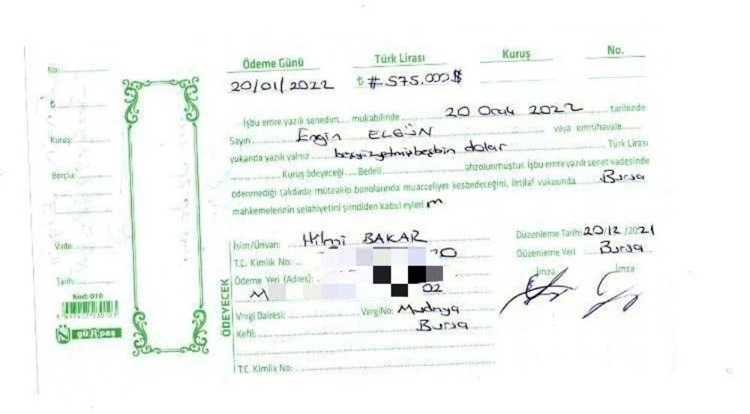 No:
Ödeme Günü Türk Lirası Kuruş No.
20/01/2022 ₺ #575.000$
₺
İşbu emre yazılı senedim mukabilinde 20 Ocak 2022 tarihinde
Kuruş:
Sayın Engin ELGÜN veya emrühavale
yukarıda yazılı yalnız beşyüzyetmişbeşbin dolar Türk Lirası
Borçlu:
Kuruş ödeyeceği Bedeli ahzolunmuştur. İşbu emre yazılı senet vadesinde
ödenmediği takdirde müteakip bonolarında muacceliyet kesbedeceğini, ihtilaf vukuunda Bursa
mahkemelerinin selahiyetini şimdiden kabul eyleri m
Vade
Tarih:
Kod: 010
gürpaş
ÖDEYECEK
İsim/Ünvan: Hilmi BAKAR
T.C. Kimlik No:
Ödeme Yeri (Adres):
M 02
Vergi Dairesi: VergiNo: Mudanya
Kefil: Bursa
T.C. Kimlik No:
Düzenleme Tarihi 20.12./2021
Düzenleme Yeri Bursa
İmza İmza